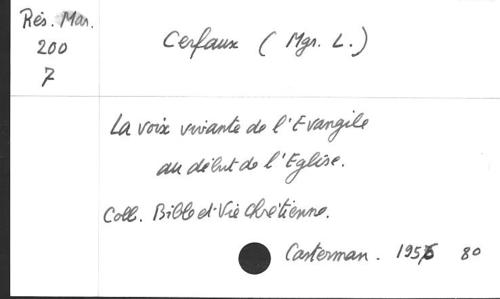 Rés. Mar.
200
7
Cerfaux (Mgr. L.)
La voix vivante de l'Evangile
au début de l'Eglise.
Coll. Bible et Vie Chrétienne.
Casterman. 1956 80